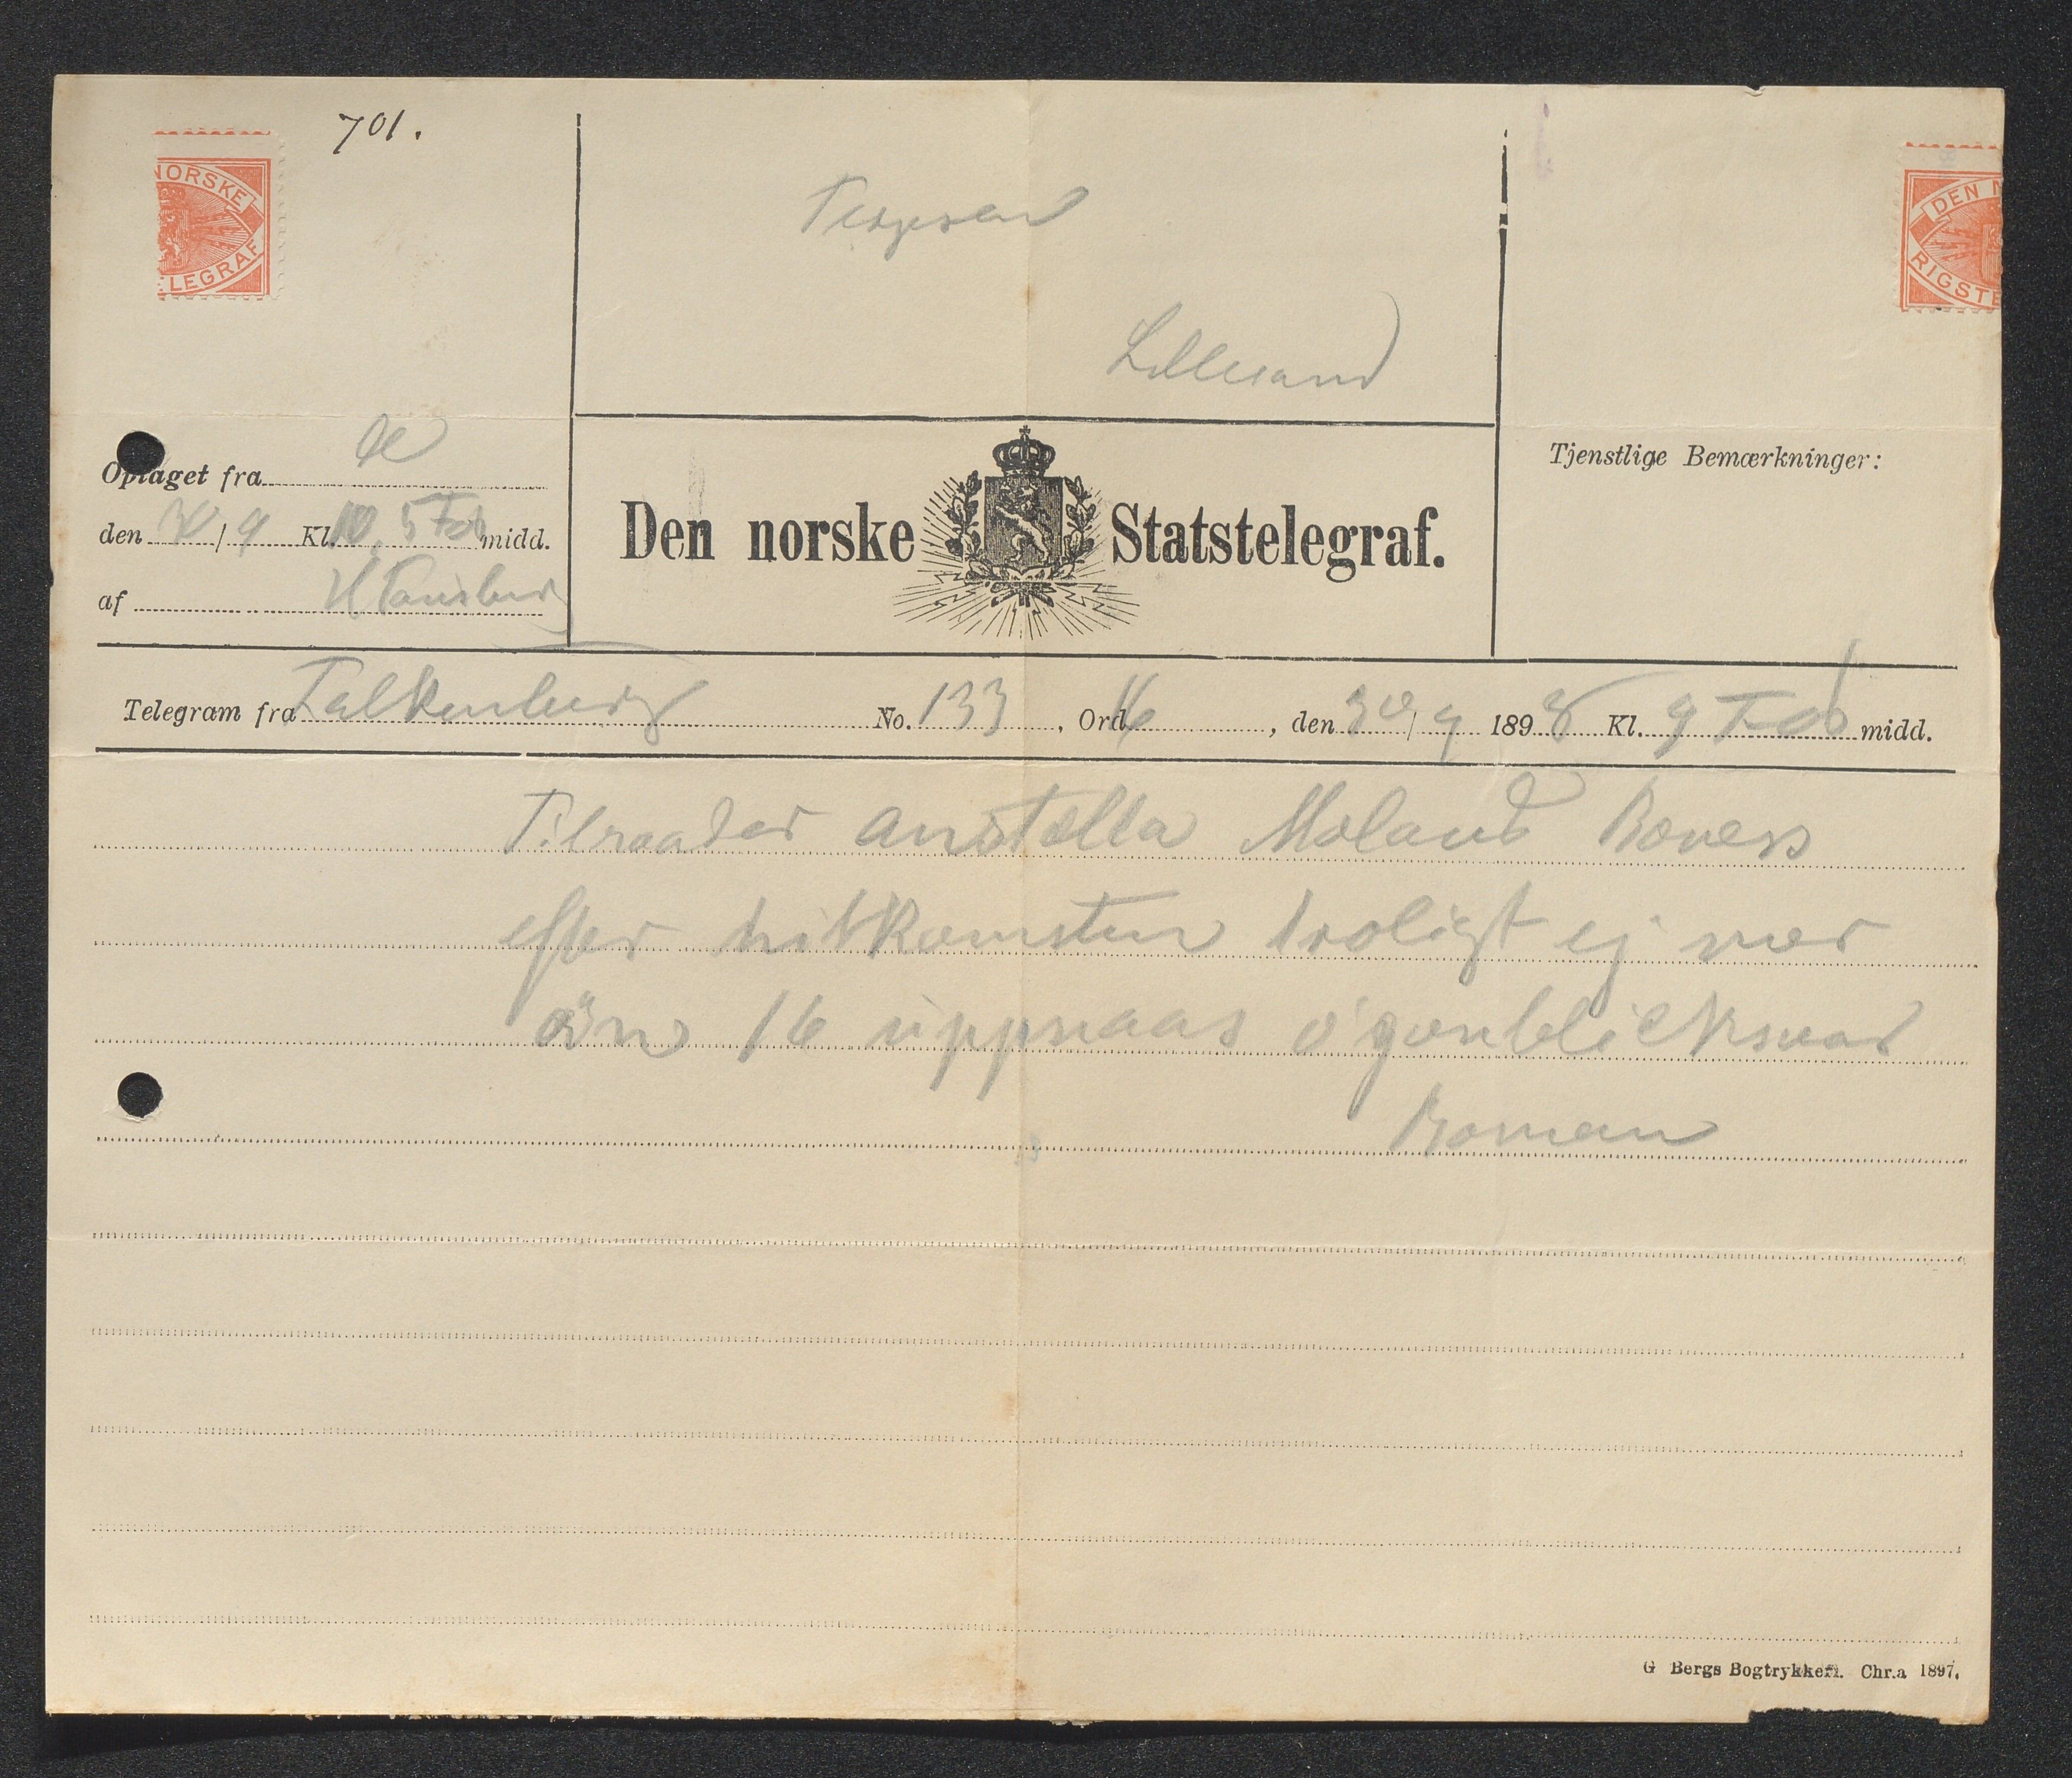 701.
NORSKE
LEGRAF
DEN N
RIGSTE
Terjesen
Lillesand
Optaget fra
den 30/9 Kl. 10.5 Fm midd.
af
Den norske Statstelegraf.
Tjenstlige Bemærkninger:
Telegram fra Falkenberg No. 133, Ord 16, den 30/9 1898 Kl. 9 F midd.
Tilraader anstælla Moland Bovess
efter hitkomsten troligt ej mer
än 16 uppnaas ögonblicksvar
Boman
G Bergs Bogtrykkeri. Chr.a 1897.